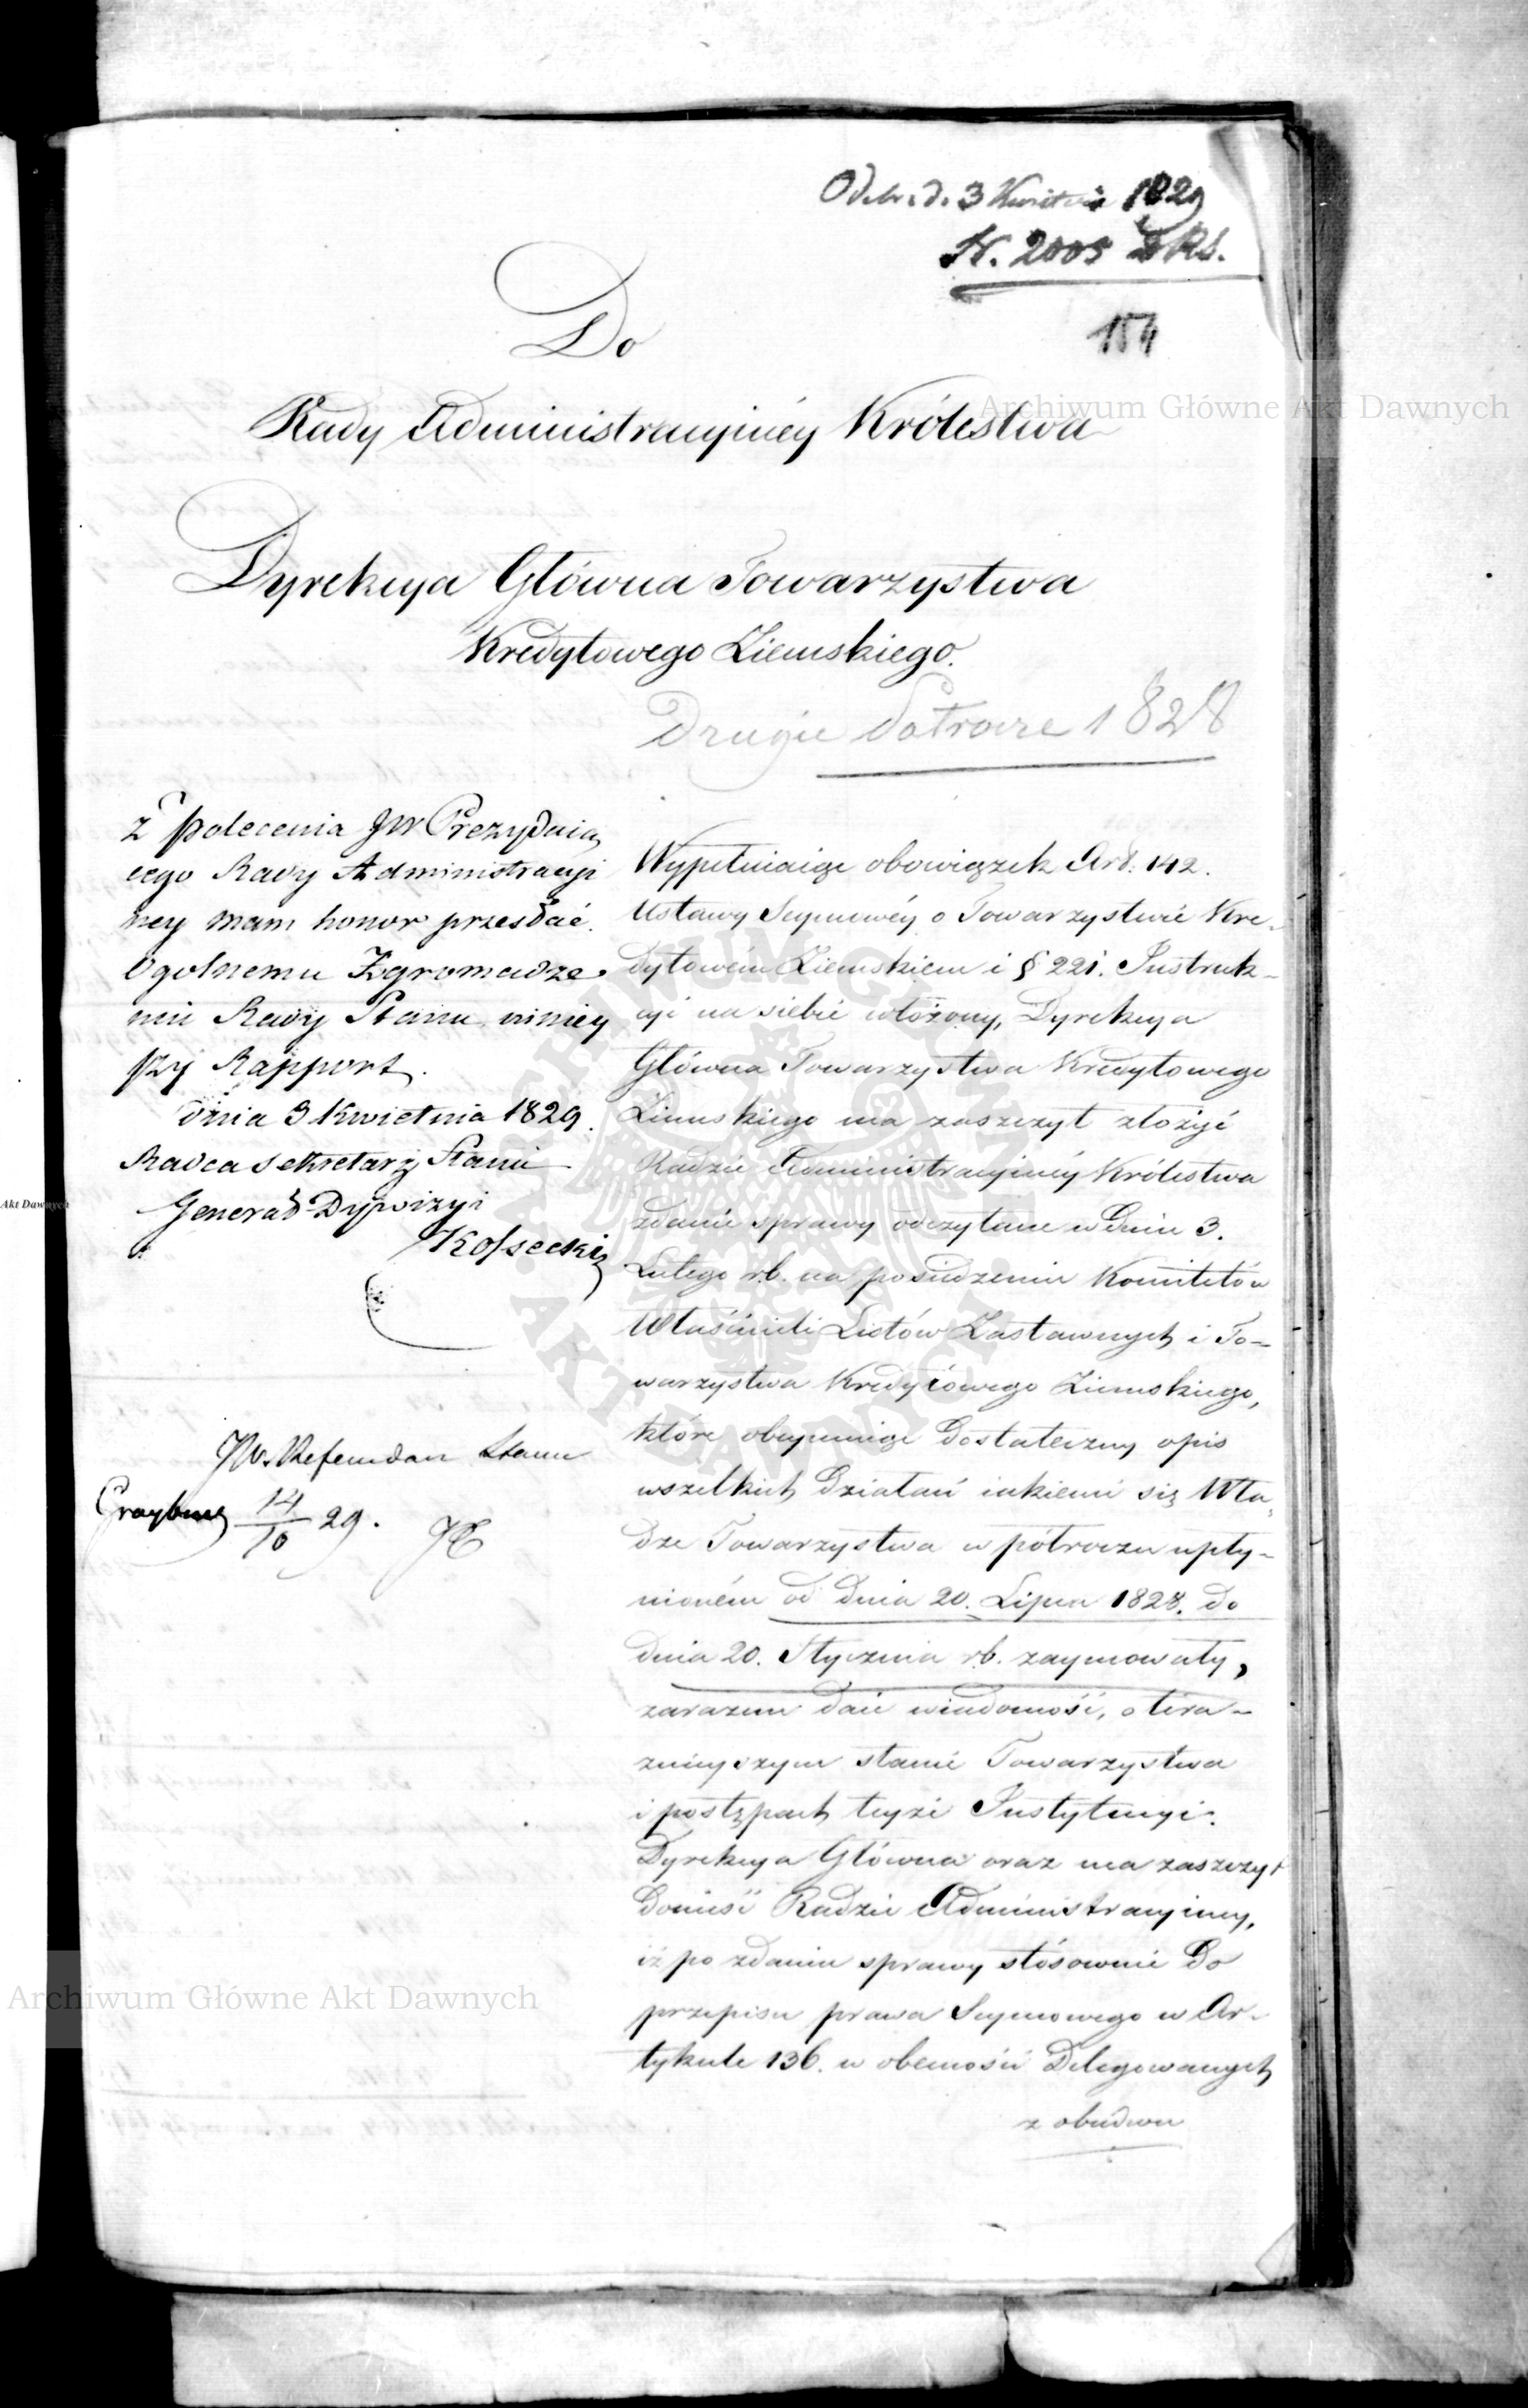 Odebr. d. 3 Kwietnia 1829
N. 2005
154
Do
Rady Administracyinéy Królestwa
Dyrekcya Główna Towarzystwa
Kredytowego Ziemskiego.
Drugie Półrocze 1828
z polecenia JW Prezyduią
cego Rady Administracyi
ney mam honor przesłać
Ogolnemu Zgromadze
niu Rady Stanu niniey
szy Rapport.
dnia 3 Kwietnia 1829.
Radca Sekretarz Stanu
Generał Dywizyi
Kossecki
JW. Referendarz Stanu
14/10 29.
Wypełniaiąc obowiązek Art. 142.
Ustawy Seymowéy o Towarzystwie Kre-
dytowém Ziemskiem i § 221. Instruk-
cyi na siebie włożony, Dyrekcya
Główna Towarzystwa Kredytowego
Ziemskiego ma zaszczyt złożyć
Radzie Administracyinéy Królestwa
zdanie sprawy odczytane w Dniu 3.
Lutego r.b. na posiedzeniu Komitetów
Właścicieli Listów Zastawnych i To-
warzystwa Kredytowego Ziemskiego,
które obeymuiąc Dostateczny opis
wszelkich Działań iakiemi się Wła-
dze Towarzystwa w półroczu upły-
nioném od Dnia 20. Lipca 1828. do
Dnia 20. Stycznia r.b. zaymowały,
zarazem daie wiadomość, o tera-
znieyszym stanie Towarzystwa
i postępach teyże Instytucyi.
Dyrekcya Główna oraz ma zaszczyt
Donieść Radzie Administracyiney,
iż po zdaniu sprawy stósownie Do
przepisu prawa Seymowego w Ar-
tykule 136. w obecności Delegowanych
z obudwu
Archiwum Główne Akt Dawnych
Archiwum Główne Akt Dawnych
Akt Dawnych
ARCHIWUM GŁÓWNE AKT DAWNYCH